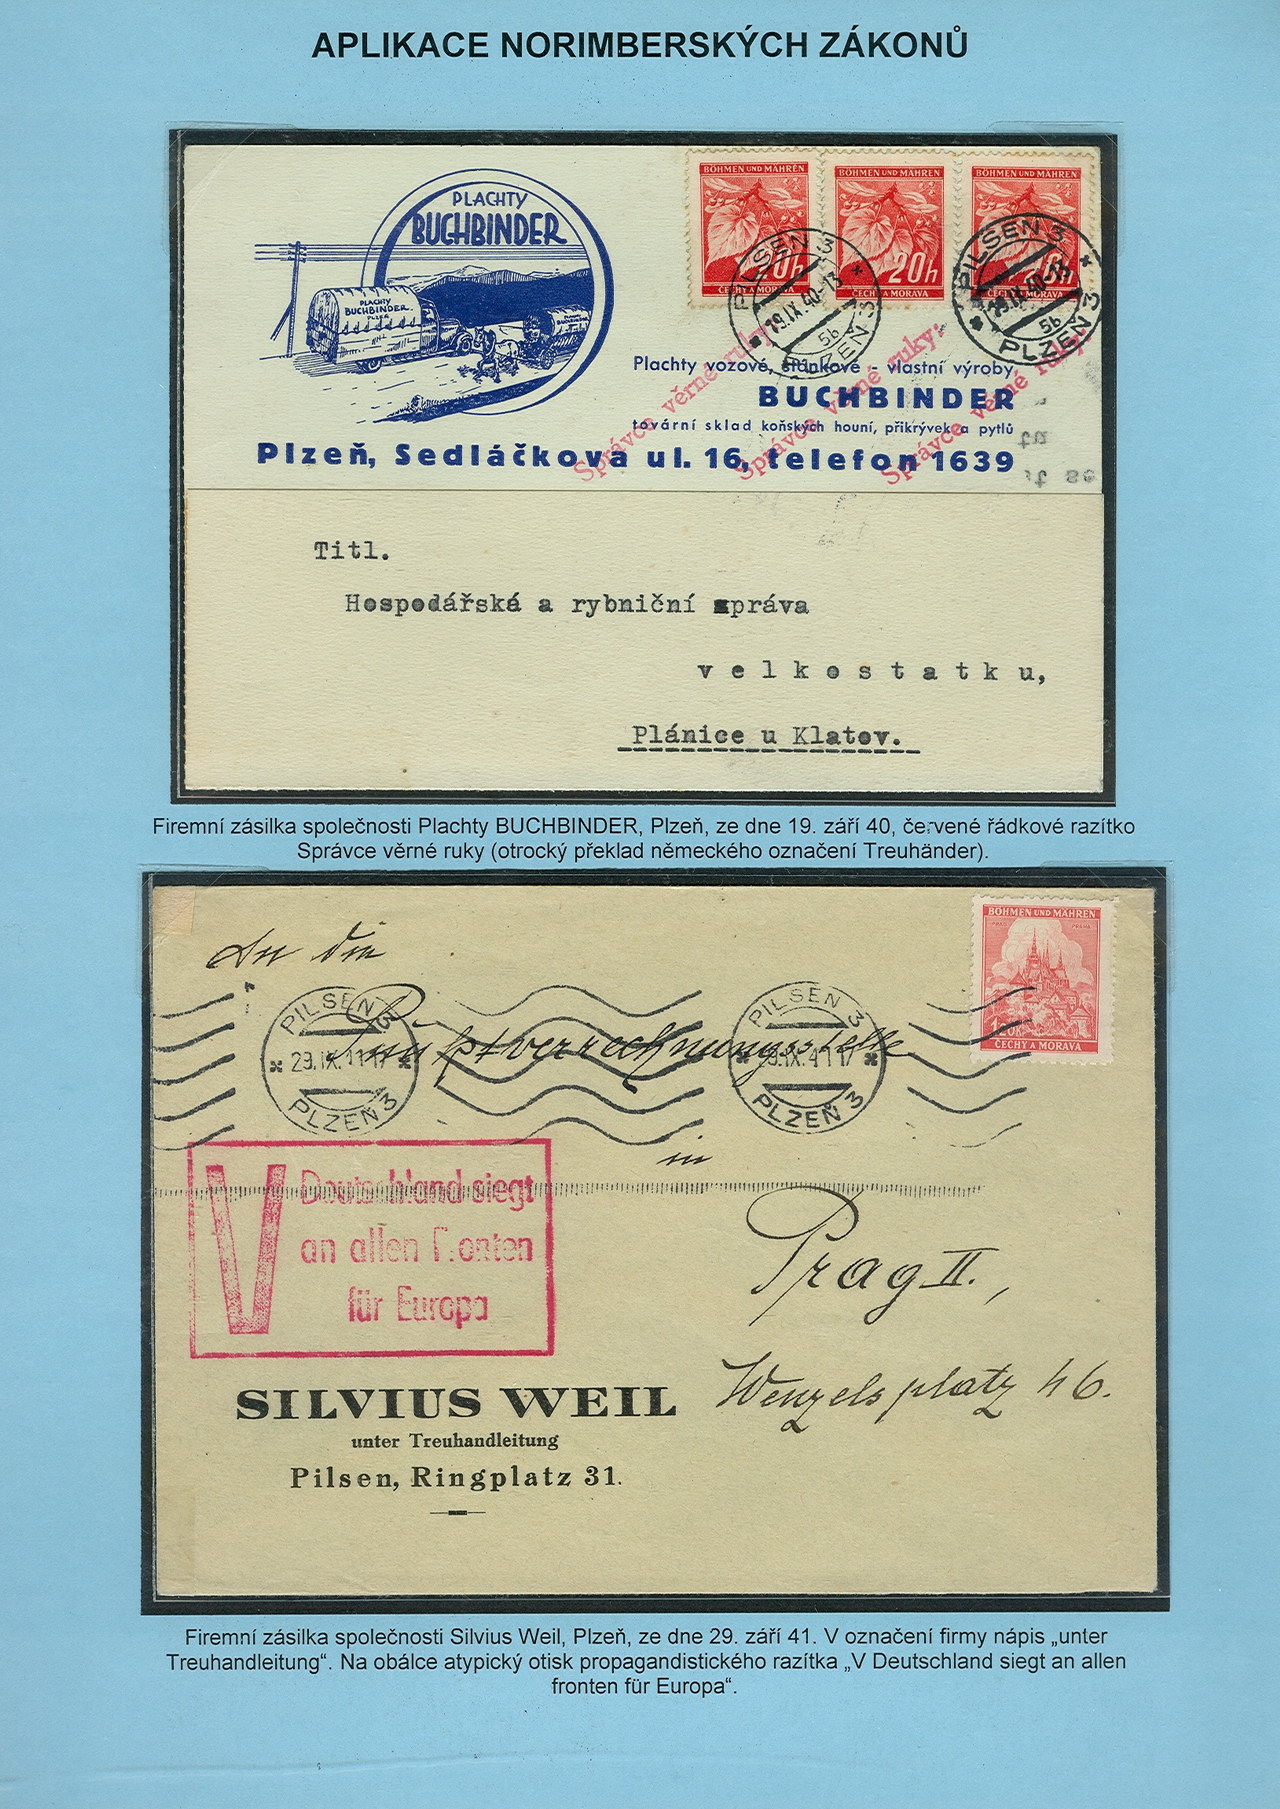 APLIKACE NORIMBERSKÝCH ZÁKONŮ
PLACHTY
BUCHBINDER
PLACHTY
BUCHBINDER
PLZEŇ
BÖHMEN UND MÄHREN
20h
ČECHY A MORAVA
BÖHMEN UND MÄHREN
20h
ČECHY A MORAVA
BÖHMEN UND MÄHREN
20h
ČECHY A MORAVA
PILSEN 3
19.IX.40-13
5b
PLZEŇ 3
PILSEN 3
19.IX.40-13
5b
PLZEŇ 3
Správce věrné ruky:
Správce věrné ruky:
Správce věrné ruky:
Plachty vozové, stánkové - vlastní výroby
BUCHBINDER
tovární sklad koňských houní, přikrývek a pytlů
Plzeň, Sedláčkova ul. 16, telefon 1639
Titl.
Hospodářská a rybniční správa
velkostatku,
Plánice u Klatov.
Firemní zásilka společnosti Plachty BUCHBINDER, Plzeň, ze dne 19. září 40, červené řádkové razítko
Správce věrné ruky (otrocký překlad německého označení Treuhänder).
BÖHMEN UND MÄHREN
PRAG PRAHA
ČECHY A MORAVA
An die
PILSEN 3
29.IX.41 17
PLZEŇ 3
PILSEN 3
29.IX.41 17
PLZEŇ 3
in
Prag II.,
Wenzelsplatz 46.
V Deutschland siegt
an allen Fronten
für Europa
SILVIUS WEIL
unter Treuhandleitung
Pilsen, Ringplatz 31.
Firemní zásilka společnosti Silvius Weil, Plzeň, ze dne 29. září 41. V označení firmy nápis „unter
Treuhandleitung“. Na obálce atypický otisk propagandistického razítka „V Deutschland siegt an allen
fronten für Europa“.